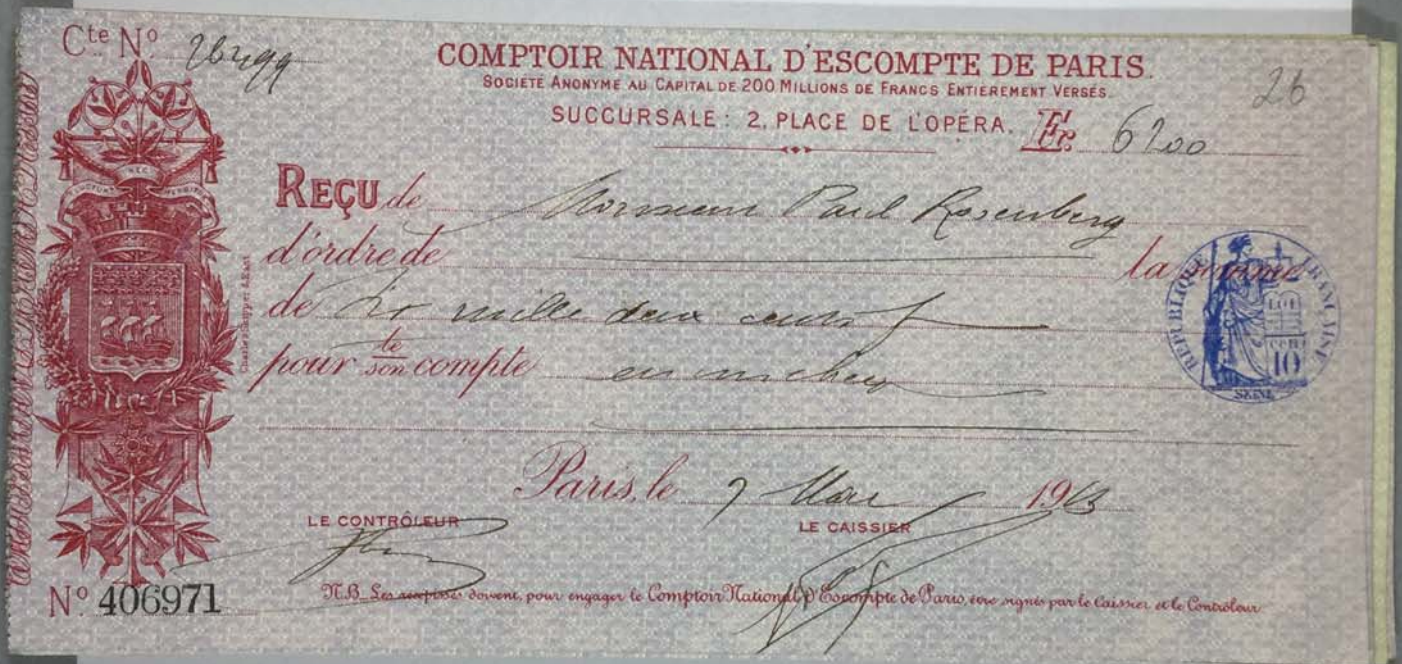 Cte No
COMPTOIR NATIONAL D'ESCOMPTE DE PARIS.
26
SOCIÉTÉ ANONYME AU CAPITAL DE 200 MILLIONS DE FRANCS ENTIÈREMENT VERSÉS.
SUCCURSALE: 2, PLACE DE L'OPÉRA. Fr. 6200
REÇU de Monsieur Paul Rosenberg
d'ordre de la somme
de six mille deux cents f
pour le/son compte en un chèque
Paris, le 7 Mars 1913
LE CONTRÔLEUR LE CAISSIER
No 406971
N.B. Les récépissés doivent, pour engager le Comptoir National d'Escompte de Paris, être signés par le Caissier et le Contrôleur
RÉPUBLIQUE FRANÇAISE
LOI
10
SEINE